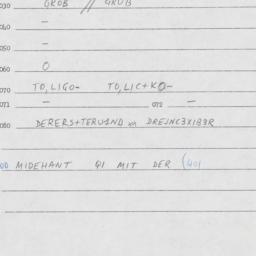 030 GROB // GRUB
040 –
050 –
060 O
070 TO,LIGO- TO,LIC+KO-
071 – 072 –
080 DERERS+TERUIND DREJNC3XIB3R
MIDEHANT QI MIT DER (401